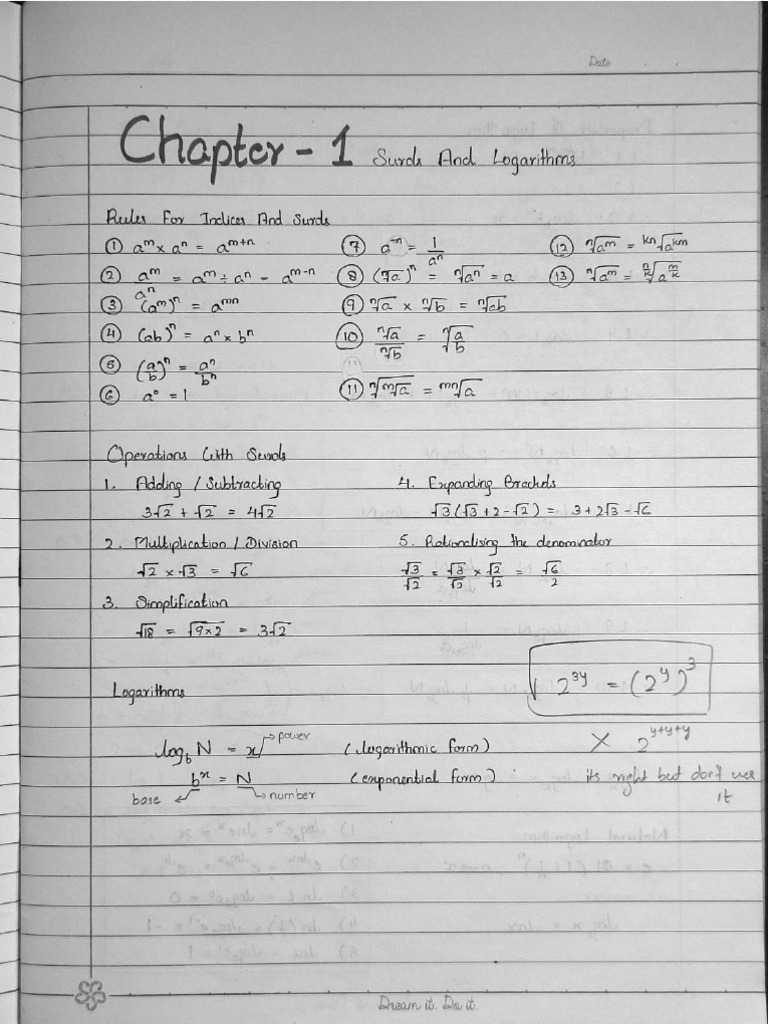 Date
Chapter - 1 Surds And Logarithms
Rules For Indices And Surds
① aᵐ × aⁿ = aᵐ⁺ⁿ
② aᵐ/aⁿ = aᵐ ÷ aⁿ - aᵐ⁻ⁿ
③ (aᵐ)ⁿ = aᵐⁿ
④ (ab)ⁿ = aⁿ × bⁿ
⑤ (a/b)ⁿ = aⁿ/bⁿ
⑥ a⁰ = 1
⑦ a⁻ⁿ = 1/aⁿ
⑧ (ⁿ√a)ⁿ = ⁿ√aⁿ = a
⑨ ⁿ√a × ⁿ√b = ⁿ√ab
⑩ ⁿ√a/ⁿ√b = ⁿ√(a/b)
⑪ ⁿ√(ᵐ√a) = ᵐⁿ√a
⑫ ⁿ√aᵐ = ᵏⁿ√aᵏᵐ
⑬ ⁿ√aᵐ = ^(n/k)√a^(m/k)
Operations With Surds
1. Adding / Subtracting
3√2 + √2 = 4√2
2. Multiplication / Division
√2 × √3 = √6
3. Simplification
√18 = √9×2 = 3√2
4. Expanding Brackets
√3(√3+2-√2) = 3+2√3-√6
5. Rationalising the denominator
√3/√2 = √3/√2 × √2/√2 = √6/2
2³ʸ = (2ʸ)³
× 2ʸ⁺ʸ⁺ʸ
its right but don't use
it
Logarithms
log_b N = x → power (logarithmic form)
bˣ = N (exponential form)
base ← → number
Dream it. Do it.